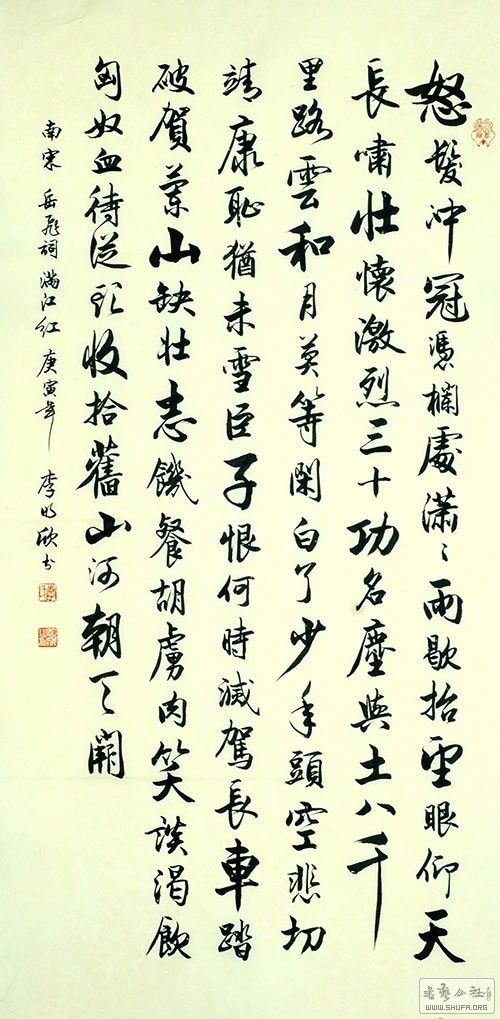 怒髮冲冠憑欄處瀟々雨歇抬望眼仰天
長嘯壯懷激烈三十功名塵與土八千
里路雲和月莫等閑白了少年頭空悲切
靖康恥猶未雪臣子恨何時滅駕長車踏
破賀蘭山缺壯志饑餐胡虜肉笑談渴飲
匈奴血待從頭收拾舊山河朝天闕
南宋岳飛詞滿江紅庚寅年 李明欣书
書藝公社
WWW.SHUFA.ORG